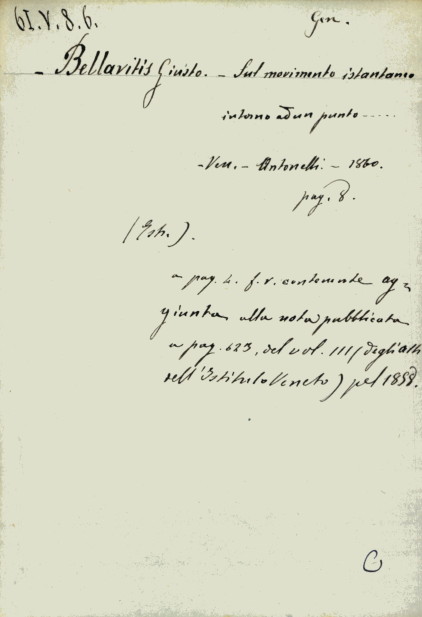 61.V.8.6.
Gen.
- Bellavitis Giusto. - Sul movimento istantaneo
intorno ad un punto -----
- Ven. - Antonelli. - 1860.
pag. 8.
(Estr.).
a pag. 4. f. v. contenente ag-
giunta alla nota pubblicata
a pag. 623, del vol. III (degli atti
dell'Istituto Veneto) pel 1858.
C